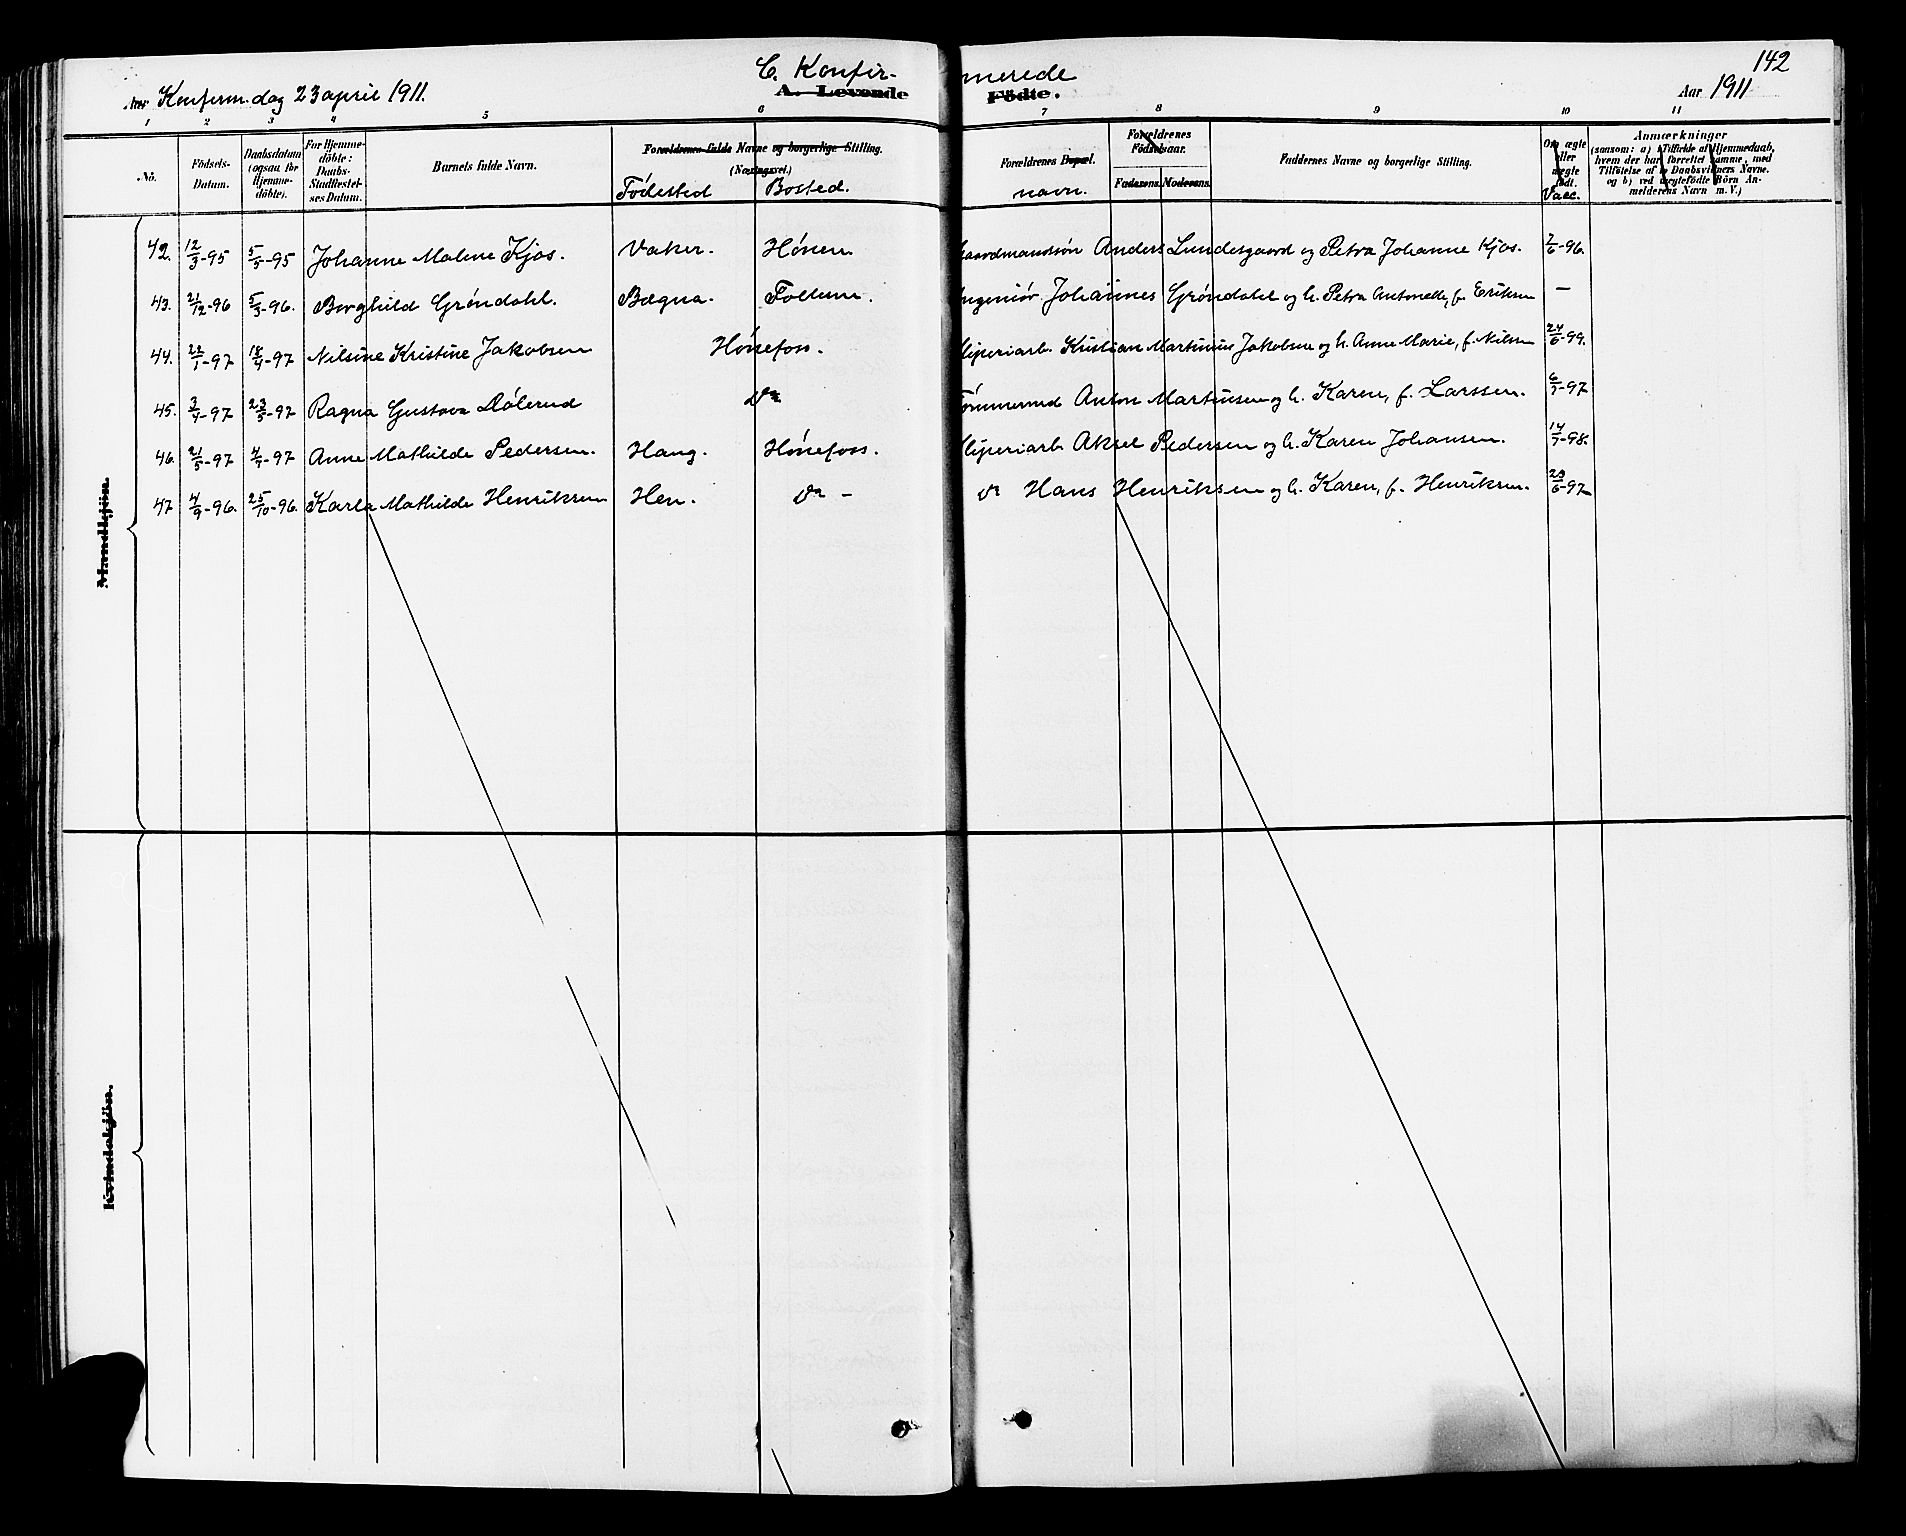 142
C. Konfirmerede
Aar Konferm. dag 23 april 1911.
A. Levende Fødte.
Aar 1911
1 2 3 4 5 6 7 8 9 10 11
No. Födsels-Datum. Daabsdatum (ogsaa for Hjemmedöbte). For Hjemmedöbte: Daabs-Stadfæstelses Datum. Barnets fulde Navn. Forældrenes fulde Navne og borgerlige Stilling. (Næringsvei.) Födested Bosted. Forældrenes Bopæl. navn. Forældrenes Födselsaar. Faderens. Moderens. Faddernes Navne og borgerlige Stilling. Om ægte eller uægte født. Vacc. Anmærkninger (saasom: a) i Tilfælde af Hjemmedaab, hvem der har forrettet samme, med Tilföielse af to Daabsvidners Navne. og b) ved uægtefödte Börn Anmelderens Navn m. V.)
42. 12/3-95 5/5-95 Johanne Malene Kjos. Vaker. Hønen. Gaardmandssön Anders Lundesgaard og Petra Johanne Kjos. 7/6-96.
43. 21/12-96 5/3-96. Borghild Gröndahl. Bægna. Follum. Ingeniör Johannes Gröndahl og h. Petra Antonette, f. Eriksen —
44. 22/1-97 18/4-97 Nilsine Kristine Jakobsen Hönefoss. Sliperiarb. Kristian Martinius Jakobsen og h. Anne Marie, f. Nilsen 24/6-99.
45. 3/4-97 23/5-97 Ragna Gustava Dölerud do Tömmermd Anton Martinsen og h. Karen, f. Larssen. 6/7-97
46. 21/5-97 4/7-97 Anne Mathilde Pedersen. Haug. Hönefoss. Sliperiarb. Aksel Pedersen og h. Karen Johansen. 14/7-98.
47 4/9-96. 25/10-96. Karla Mathilde Henriksen Hen. do - do Hans Henriksen og h. Karen, f. Henriksen. 23/6-97
Mandkjön.
Kvindekjön.